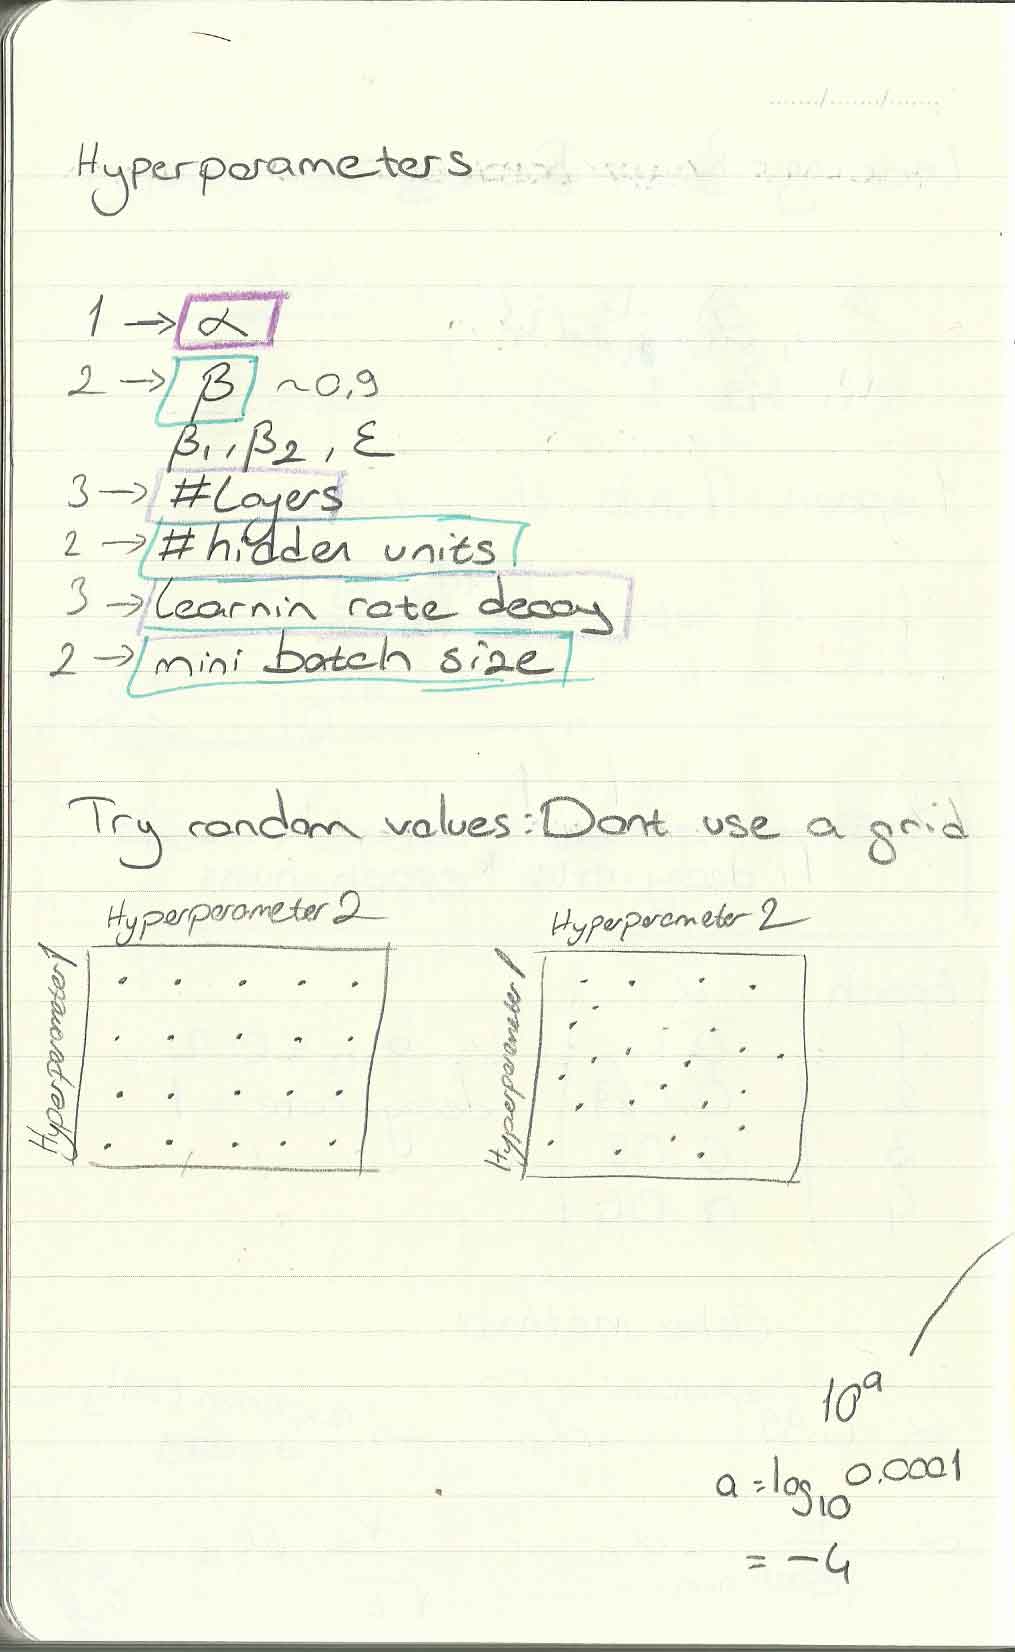 Hyperparameters
1 → α
2 → β ~0,9
β₁, β₂, ε
3 → #Layers
2 → # hidden units
3 → learnin rate decay
2 → mini batch size
Try random values: Dont use a grid
Hyperparameter 2
Hyperparameter 1
Hyperparameter 2
Hyperparameter 1
10ᵃ
a = log₁₀ 0.0001
= -4